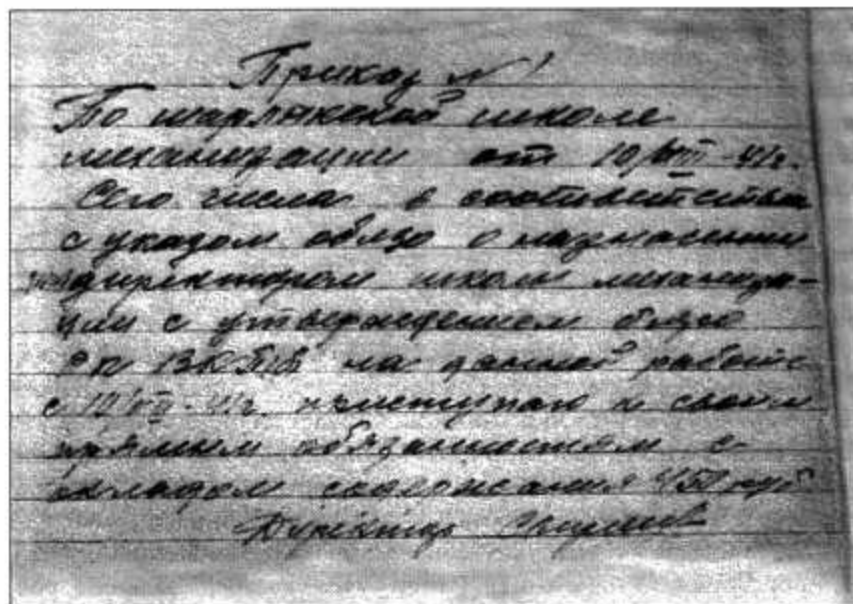 Приказ № 1
По шарлыкской школе
механизации от 10/VIII-41г.
Сего числа в соответствии
с указом облзо о назначении
директором школы механиза-
ции с утверждением бюро
РК ВКП/б на данной работе
с 12/VII-41г. приступаю к своим
прямым обязанностям с
окладом содержания 450 руб
Директор